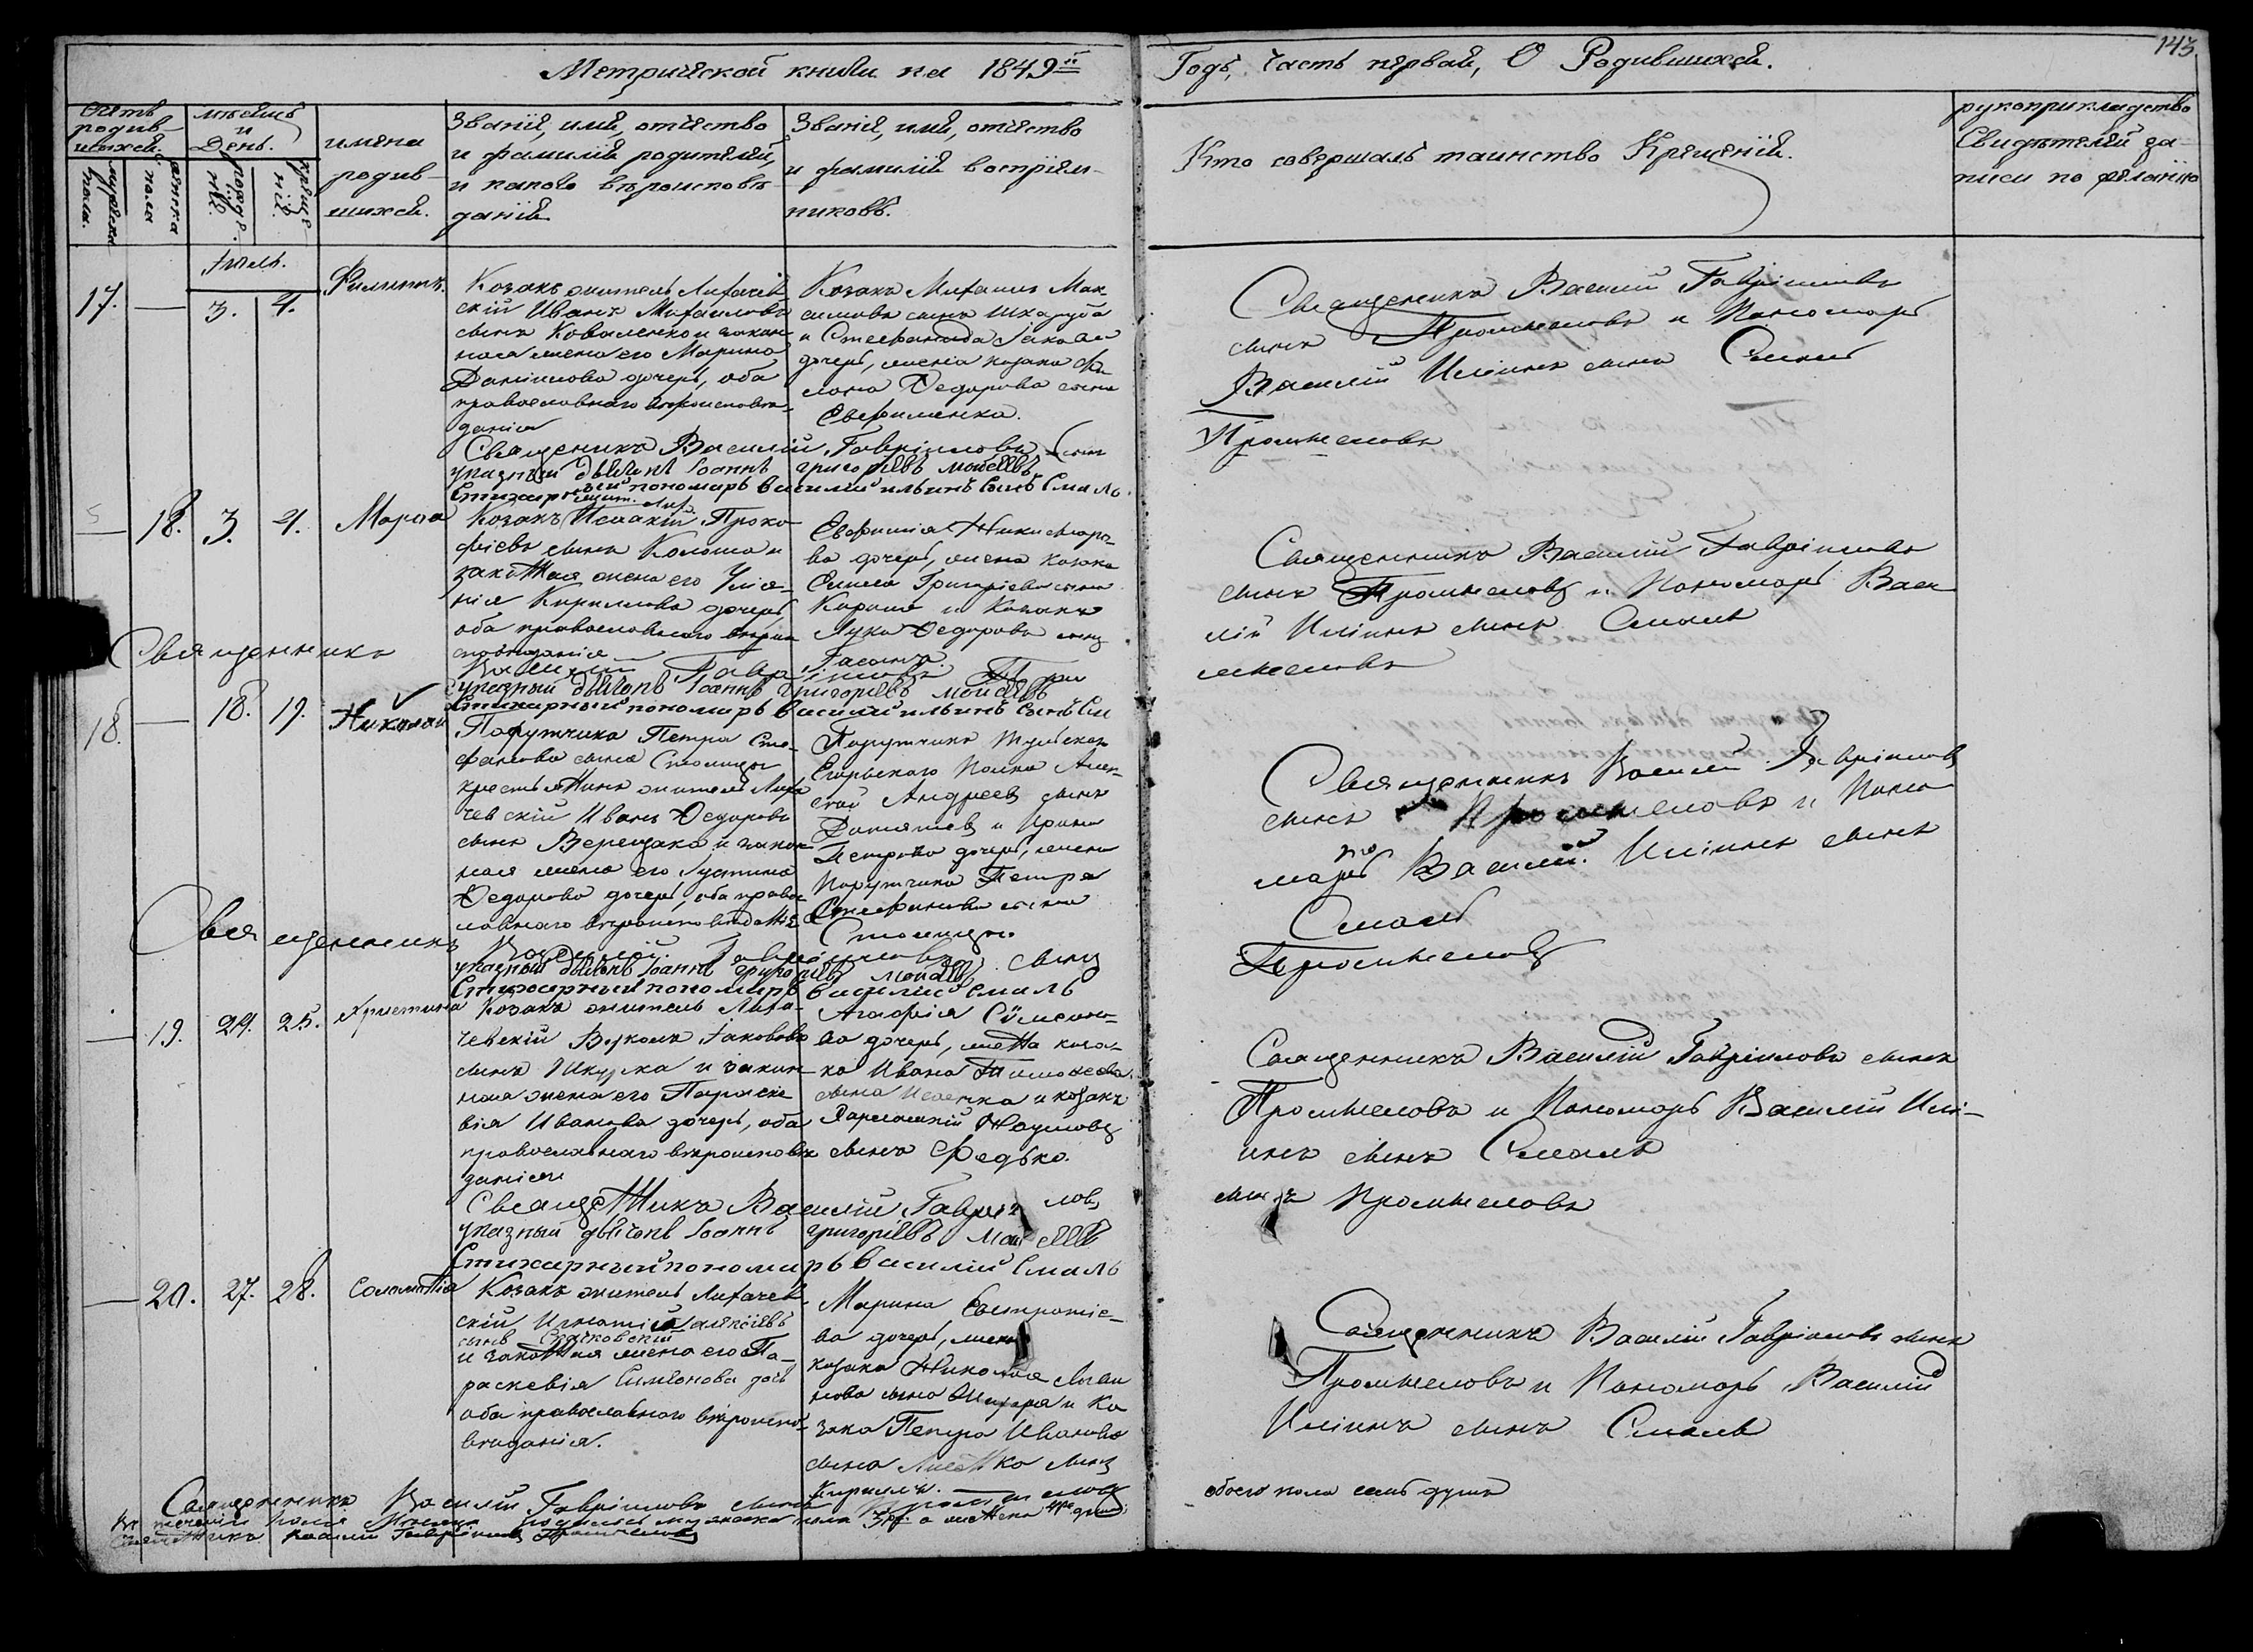 Метрической книги на 1849й
Годъ, часть первая, О Родившихся.
143.
Счетъ родив-
шихся.
мужеска
пола.
женска
пола
мѣсяцъ
и
День.
рожде-
нія.
креще-
нія.
имена
родив-
шихся.
Званіе, имя, отчество
и фамилія родителей,
и какого вѣроисповѣ-
данія
Званіе, имя, отчество
и фамилія воспріем-
никовъ.
Кто совершалъ таинство Крещенія.
рукоприкладство
Свидѣтелей за-
писи по желанію
Іюль.
17. — 3. 4.
Филиппъ.
Козакъ житель Лихачев-
скій Иванъ Михаиловъ
сынъ Коваленко и закон-
ная жена его Марина
Даніилова дочерь, оба
православнаго вѣроисповѣ-
данія
Козакъ Михаилъ Мак
симовъ сынъ Шкаруба
и Стефанида Іакова
дочерь, жена козака Фи
лона Ѳедорова сына
Евфименка.
Священникъ Василій Гавріиловъ
сынъ Промшеловъ и Пономарь
Василій Иліинъ сынъ Смаль
Священикъ Василій Гавріиловъ сынъ
Промшеловъ
указный дьячокъ Іоаннъ григорьевъ моисеевъ
Стихарный пономарь василий ильинъ сынъ Смаль
— 18. 3. 4.
Марфа
жит. Лих.
Козакъ Исаакій Проко-
фіевъ сынъ Колоша и
законная жена его Уліа-
нія Кириллова дочерь
оба православнаго вѣрои
сповѣданія
Евфимія Никифоро-
ва дочерь, жена козака
Григоріева сына
и Козакъ
Лука Ѳедоровъ сынъ
Священникъ Василій Гавріиловъ
сынъ Промшеловъ и Пономарь Васи
лій Иліинъ сынъ Смаль
Священникъ
Василий Гавріиловъ Про
мшеловъ
указный дьячокъ Іоаннъ григорьевъ моисеевъ
Стихарный пономарь василий ильинъ сынъ См
18. — 18. 19.
Николай
Порутчика Петра Сте-
фанова сына Столицы
крестьянинъ житель Лиха
чевскій Иванъ Ѳедоровъ
сынъ Верещака и закон
ная жена его Іустина
Ѳедорова дочерь, оба правос
лавнаго вѣроисповѣданія
Порутчикъ
Егорьскаго Полка Алек
сѣй Андреевъ сынъ
и Ирина
Петрова дочерь, жена
Порутчика Петра
Стефанова сына
Столицы.
Священникъ Василій Гавріиловъ
сынъ Промшеловъ и Поно
марь Василій Иліинъ сынъ
Смаль
Священникъ
Василій Гавріиловъ сынъ
Промшеловъ
указный дьячокъ Іоаннъ григорьевъ моисеевъ
Стихарный пономарь василий смаль
— 19. 24. 25.
Христина
Козакъ житель Лиха-
чевскій Вуколъ Іакововъ
сынъ Шкурка и закон-
ная жена его Параске
вія Иванова дочерь, оба
православнаго вѣроисповѣ
данія
Агафія Сѵмеоно-
ва дочерь, жена коза-
ка Ивана Тимоѳеева
сына Исаенка и козакъ
Варлаамій Наумовъ
сынъ Федько.
Священникъ Василій Гавріиловъ сынъ
Промшеловъ и Пономарь Василій Илі-
инъ сынъ Смаль
Священникъ Василій Гавріиловъ
сынъ Промшеловъ
указный дьячокъ Іоаннъ григорьевъ моисеевъ
Стихарный пономарь василий смаль
— 20. 27. 28.
Соломонія
Козакъ житель Лихачев-
скій Игнатій алексіевъ
сынъ
и законная жена его Па-
раскевія Симеонова дочь
оба православнаго вѣроиспо-
вѣданія.
Марина Евстратіе-
ва дочерь, жена
козака Николая
нова сына и Ко
зака Петра Иванова
сына сынъ
Кириллъ.
Священникъ Василій Гавріиловъ сынъ
Промшеловъ и Пономарь Василій
Иліинъ сынъ Смаль
Священникъ Василій Гавріиловъ сынъ Промшеловъ
Въ теченіи Іюля Мѣсяца родилось мужеска пола 3ри а женска 4ре души
обоего пола семь душъ
Священникъ Василій Гавріиловъ Промшеловъ